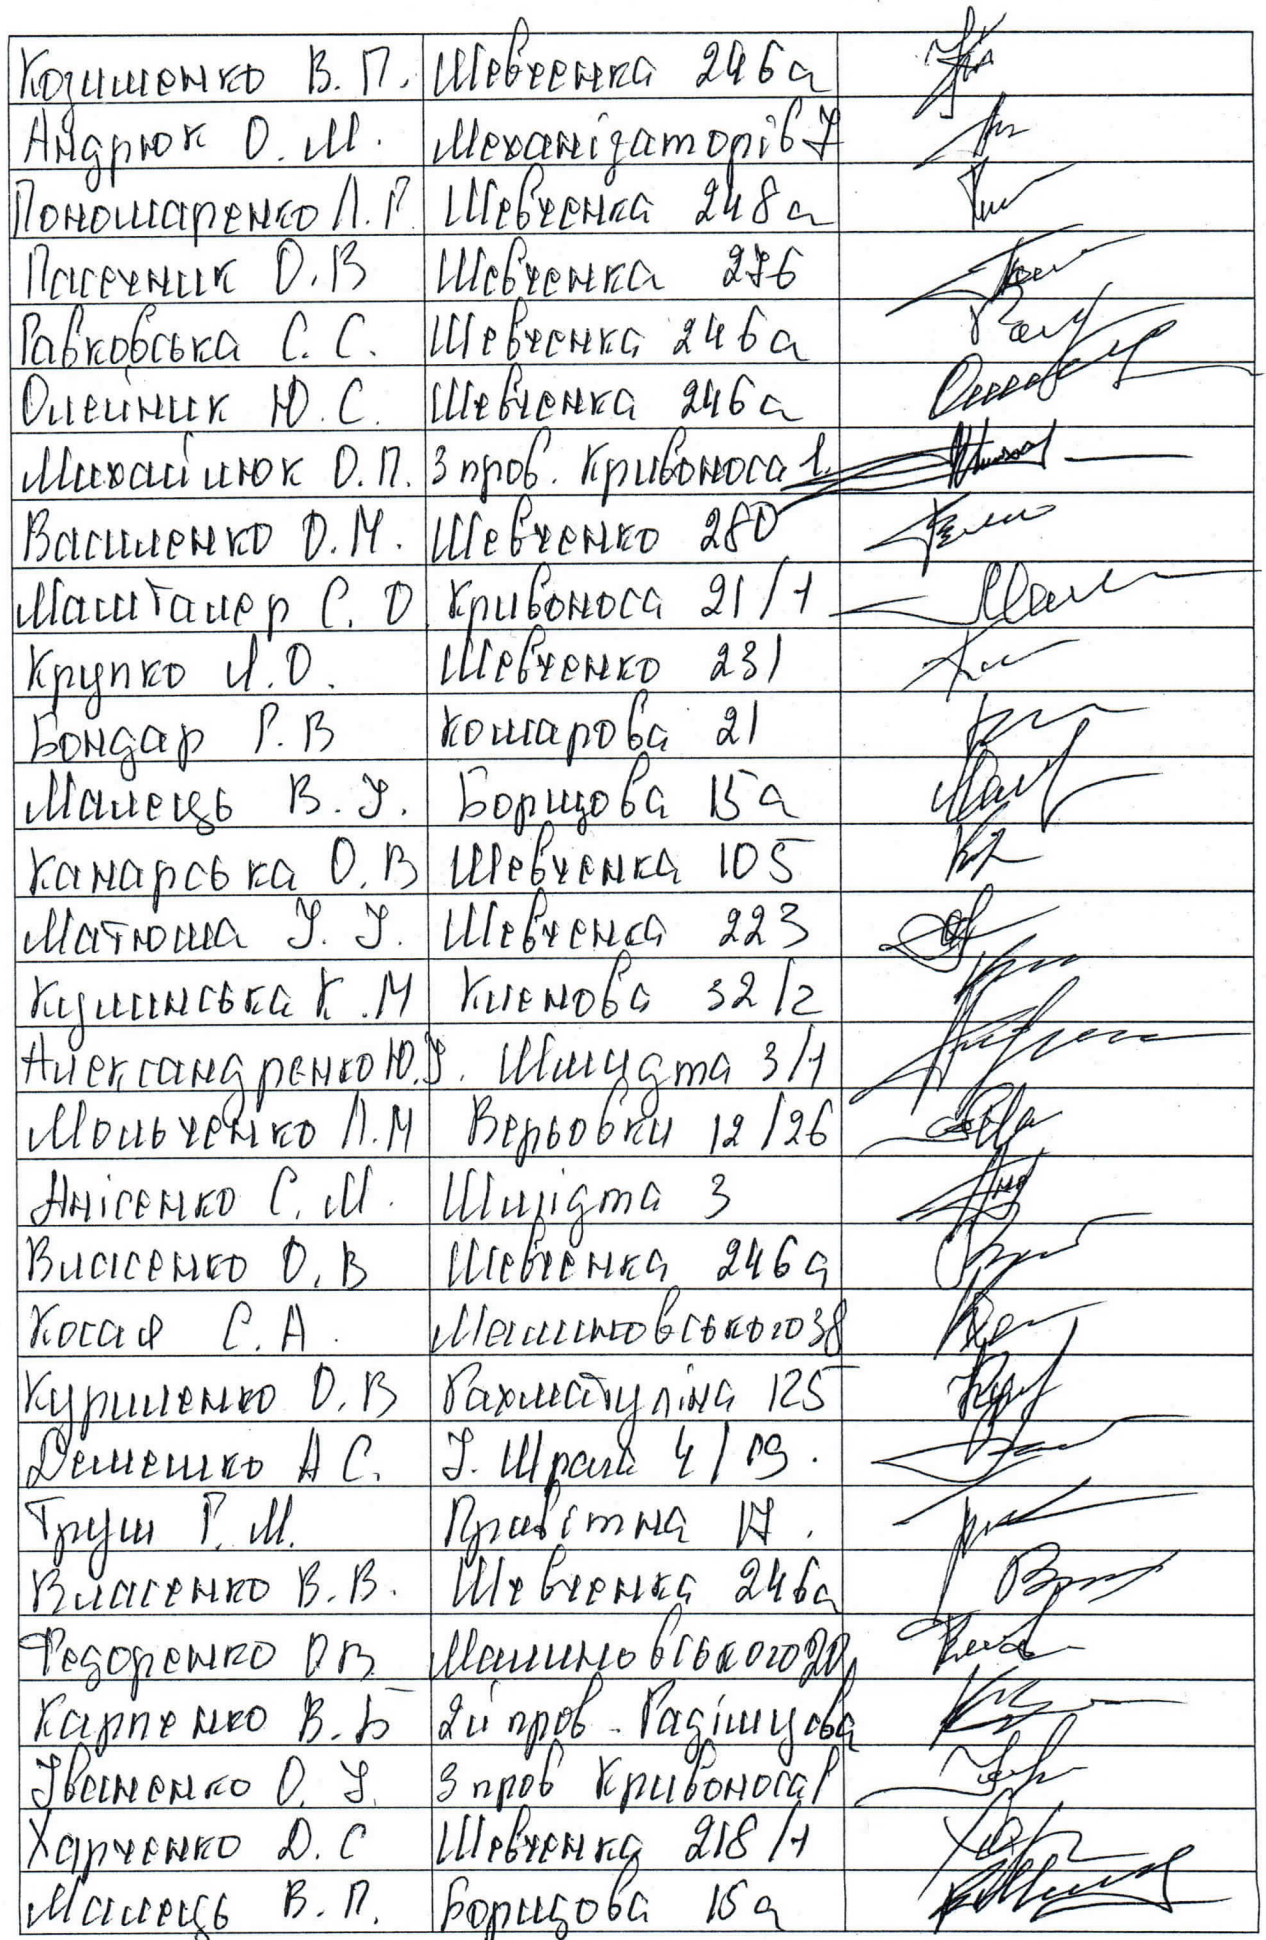 Козименко В. П. Шевченка 246а
Андрюк О. М. Механізаторів 7
Пономаренко Л. Г. Шевченка 248а
Пасечник О. В Шевченка 276
Равковська С. С. Шевченка 246а
Олейник Ю. С. Шевченка 246а
Михайлюк О. П. 3 пров. Кривоноса 1.
Василенко О. М. Шевченко 280
Машталер С. О Кривоноса 21/1
Крупко І. О. Шевченко 231
Бондар Г. В Комарова 21
Малець В. І. Борщова 15а
Канарська О. В Шевченка 105
Матюша І. І. Шевченка 223
К. М 32/2
Александренко Ю. І. Шмидта 3/1
Мольченко Л. М Верьовки 12/26
Анісенко С. М. Шмідта 3
Власенко О. В Шевченка 246а
Косая С. А. Малиновського 38
Куриленко О. В Рахматуліна 125
Демешко А С. І. Шрага 4/
Труш Г. М. Привітна 17.
Власенко В. В. Шевченка 246а
Федоренко О В Малиновського 20
Карпенко В. Б 2й пров. Радіщева
Іваненко О. І. 3 пров Кривоноса 1
Харченко Д. С Шевченка 218/1
Малець В. П. Борщова 15а